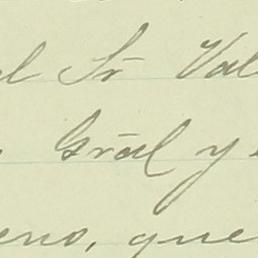 el Sr Val
Gral y
eno, que